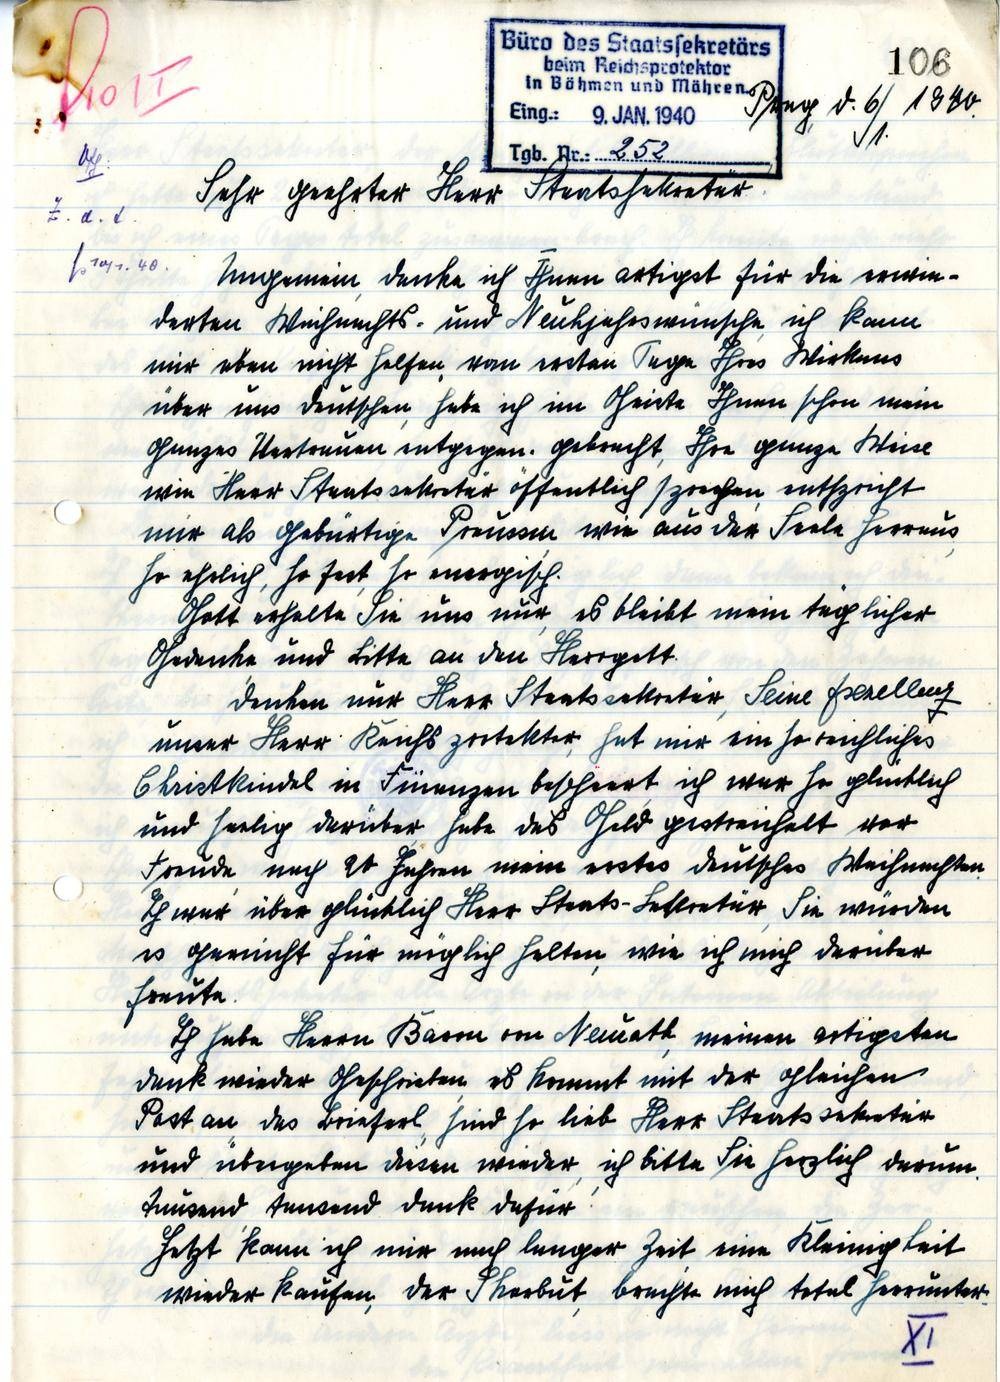 106
Büro des Staatssekretärs
beim Reichsprotektor
in Böhmen und Mähren
Eing.: 9. JAN. 1940
Tgb. Nr.: 252
Prag, d. 6/1. 1940.
Z. d. A.
Sehr geehrter Herr Staatssekretär.
Ungemein, danke ich Ihnen artigst für die erwie-
derten Weihnachts- und Neuhjahrswünsche, ich kann
mir eben nicht helfen, vom ersten Tage Ihres Wirkens
über uns Deutschen, habe ich im Geiste Ihnen schon mein
ganzes Vertrauen entgegen. gebracht, Ihre ganze Weise
wie Herr Staatssekretär öffentlich sprechen, entspricht
mir als gebürtige Preussin, wie aus der Seele herraus,
so ehrlich, so fest, so energisch.
Gott erhalte Sie uns nur, es bleibt mein täglicher
Gedanke und Bitte an den Herrgott.
Denken nur Herr Staatssekretär, Seine Exzellenz
unser Herr Reichsprotektor, hat mir ein so reichliches
Christkindel in Finanzen bescheert, ich war so glücklich
und seelig darüber, habe das Geld gestreichelt vor
Freude, nach 20 Jahren mein erstes deutsches Weihnachten.
Ich war über glücklich Herr Staats-Sekretär, Sie würden
es garnicht für möglich halten, wie ich mich darüber
freute.
Ich habe Herrn Baron von Neurath, meinen artigsten
Dank wieder Geschrieben, es kommt mit der gleichen
Post an, das Brieferl, sind so lieb Herr Staatssekretär
und übergeben diesen wieder, ich bitte Sie herzlich darum.
Tausend tausend Dank dafür!
Jetzt kann ich mir nach langer Zeit, eine Kleinigkeit
wieder kaufen, der Skorbut, brachte mich total herrunter.
XI